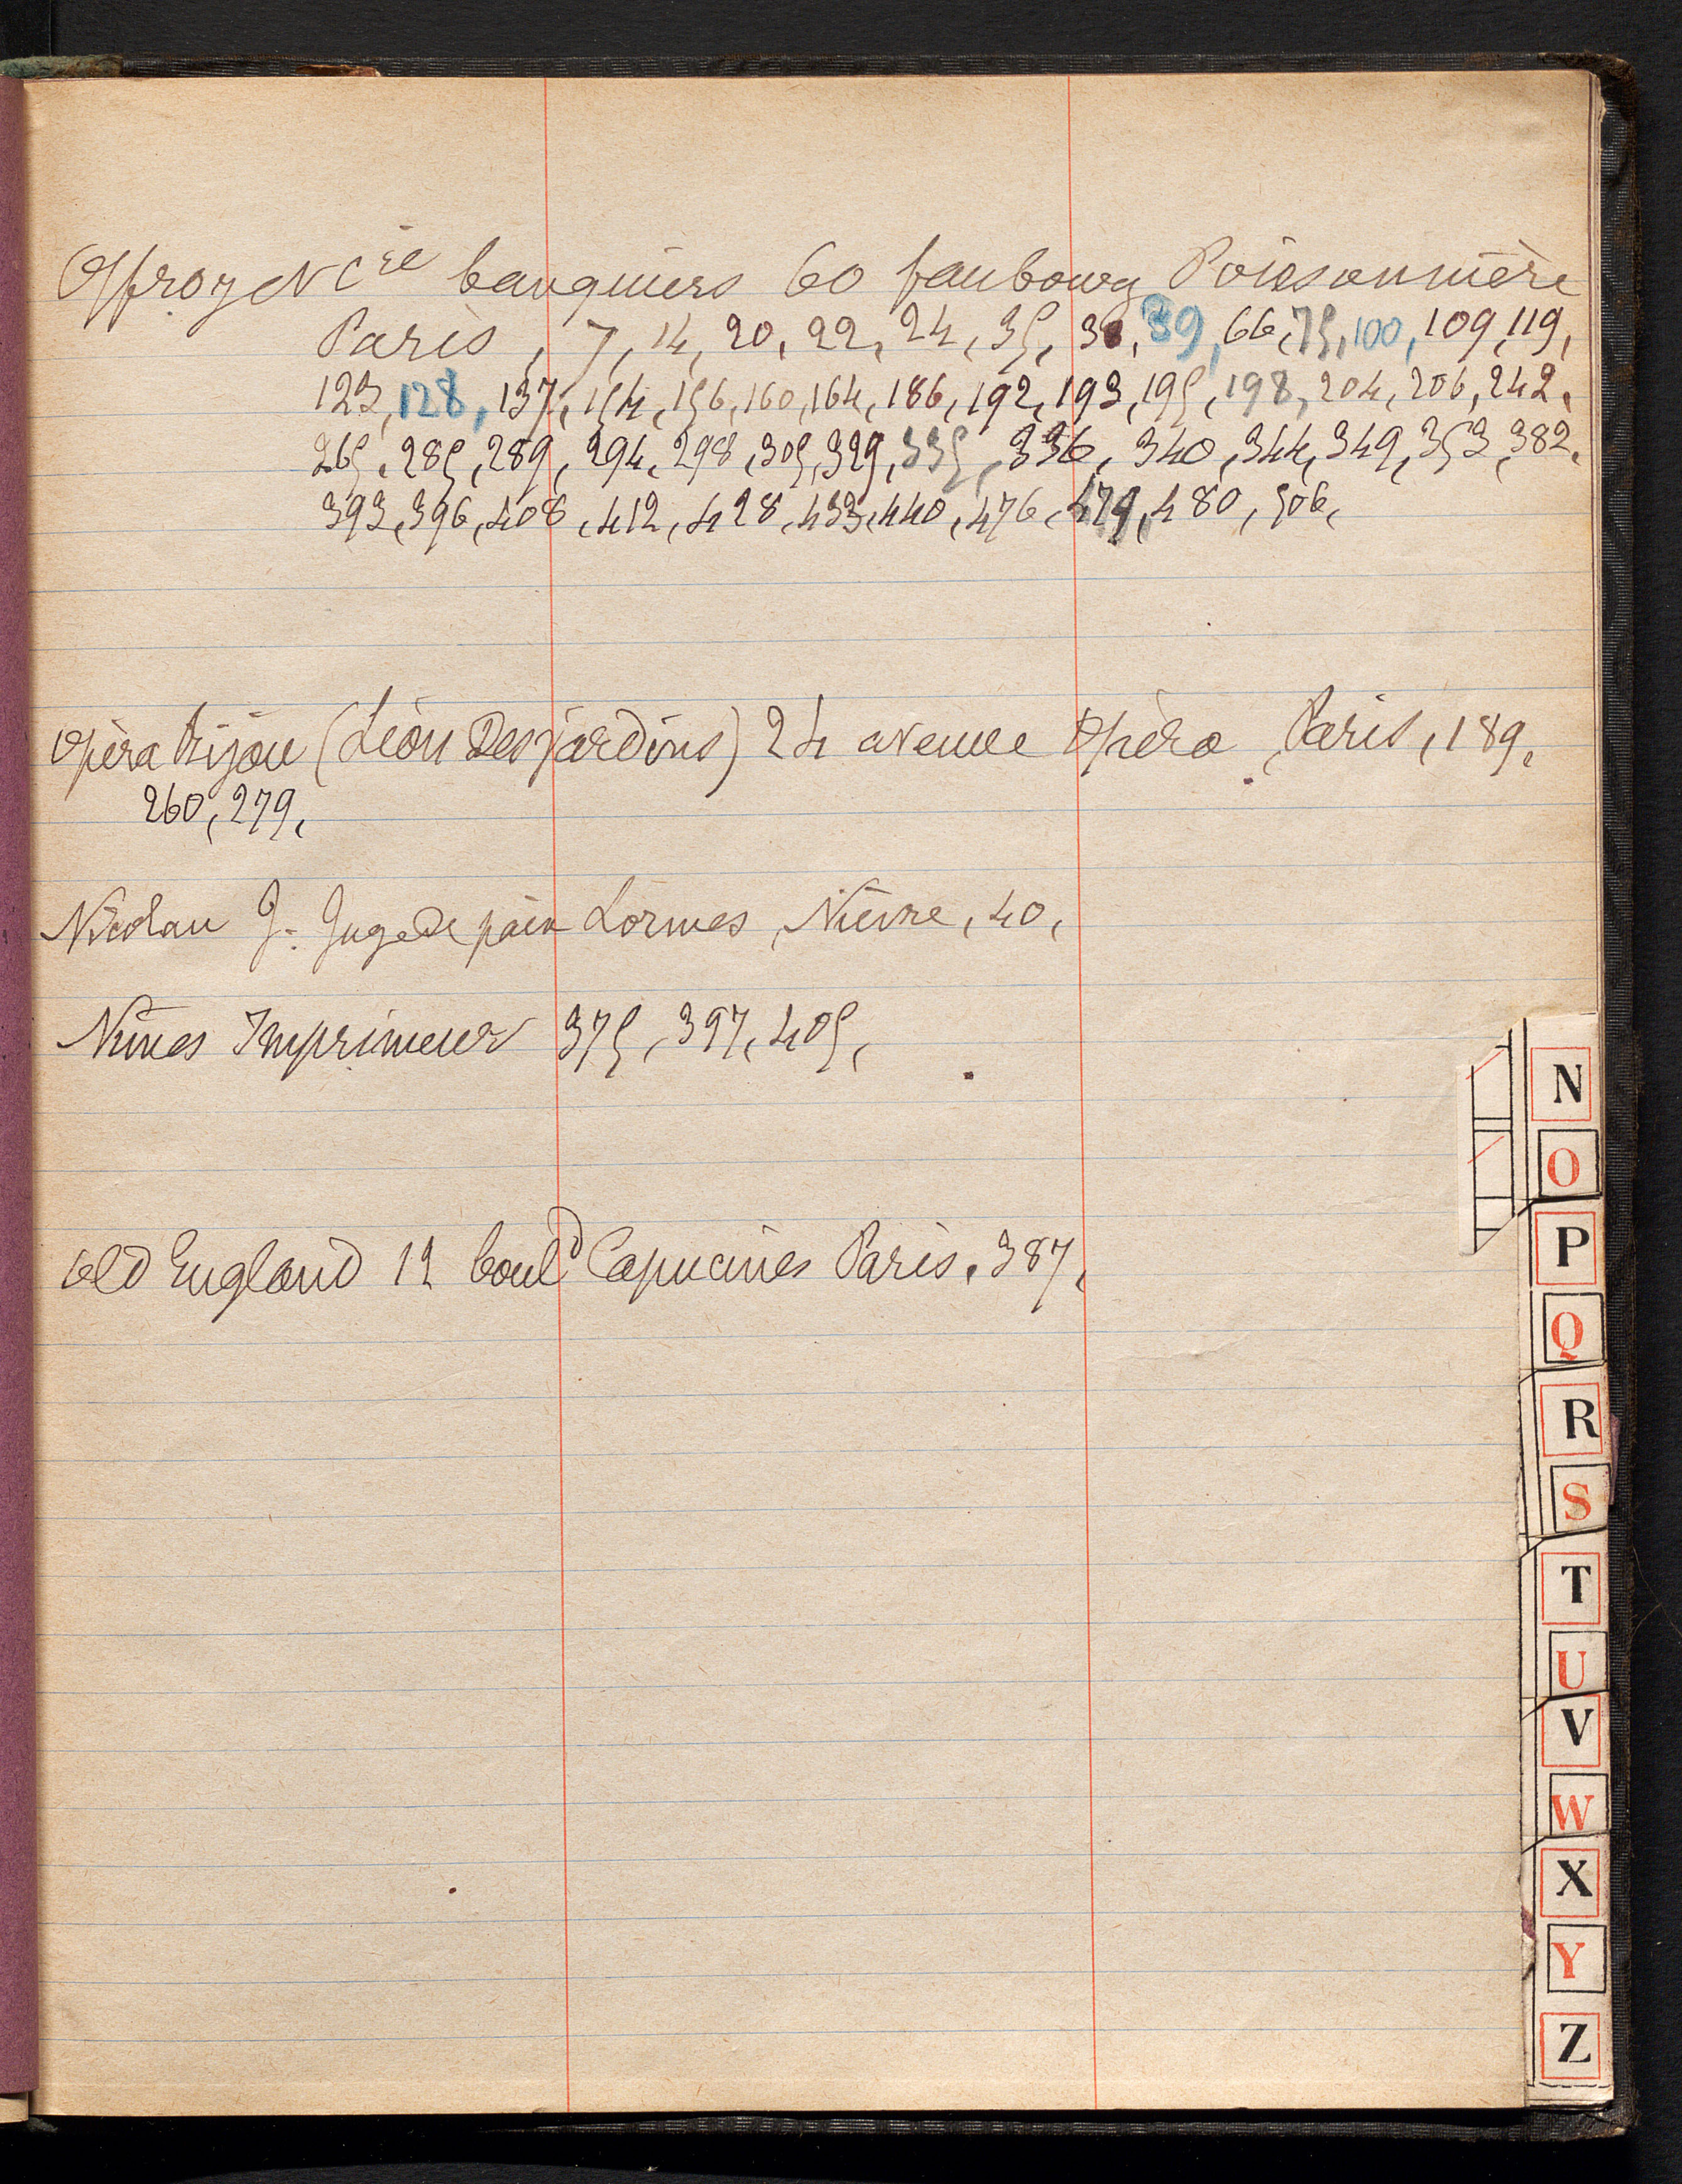 Offroy et Cie banquiers 60 faubourg Poissonnière
Paris, 7, 14, 20, 22, 24, 35, 38, 39, 66, 75, 100, 109, 119,
123, 128, 137, 154, 156, 160, 164, 186, 192, 193, 195, 198, 204, 206, 242,
265, 285, 289, 294, 298, 305, 329, 335, 336, 340, 344, 349, 353, 382,
393, 396, 408, 412, 428, 433, 440, 476, 479, 480, 506,
Opéra Bijou (Léon Desjardins) 24 avenue Opéra, Paris, 189,
260, 279,
Nicolau J. Juge de paix Lormes, Nièvre, 40,
Nunes Imprimeur 375, 397, 405,
Old England 12 bould Capucines Paris, 387,
N
O
P
Q
R
S
T
U
V
W
X
Y
Z